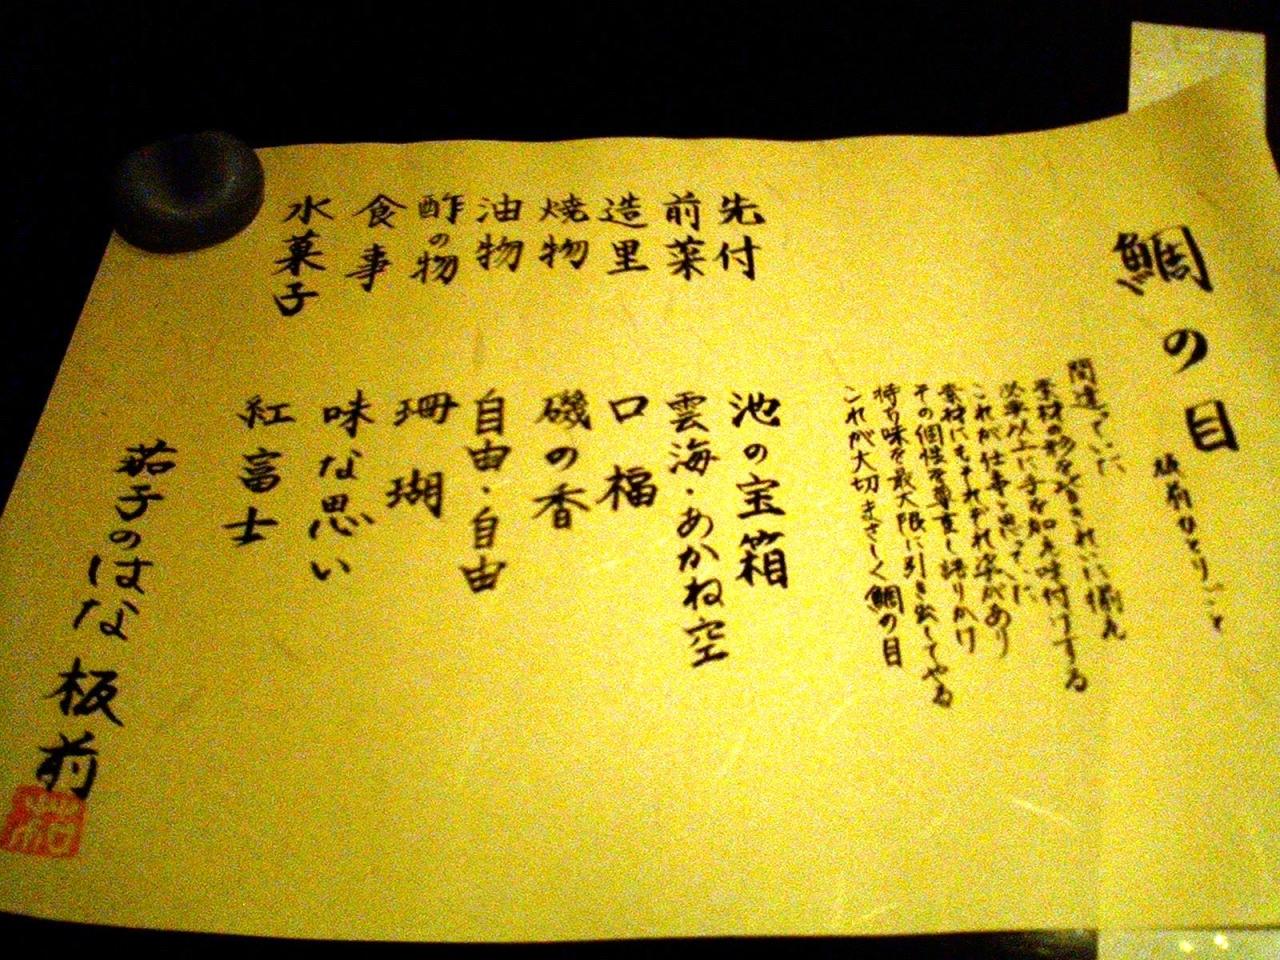 鯛の目
板前ひとりごと
間違っていた
素材の形をきれいに揃え
必要以上に手を加え味付けする
これが仕事と思っていた
素材にもそれぞれ命があり
その個性を尊重し語りかけ
持ち味を最大限に引き出してやる
これが大切まさしく鯛の目
先付 池の宝箱
前菜 雲海・あかね空
造里 口福
焼物 磯の香
油物 自由・自由
酢の物 珊瑚
食事 味な思い
水菓子 紅富士
茄子のはな 板前
茄